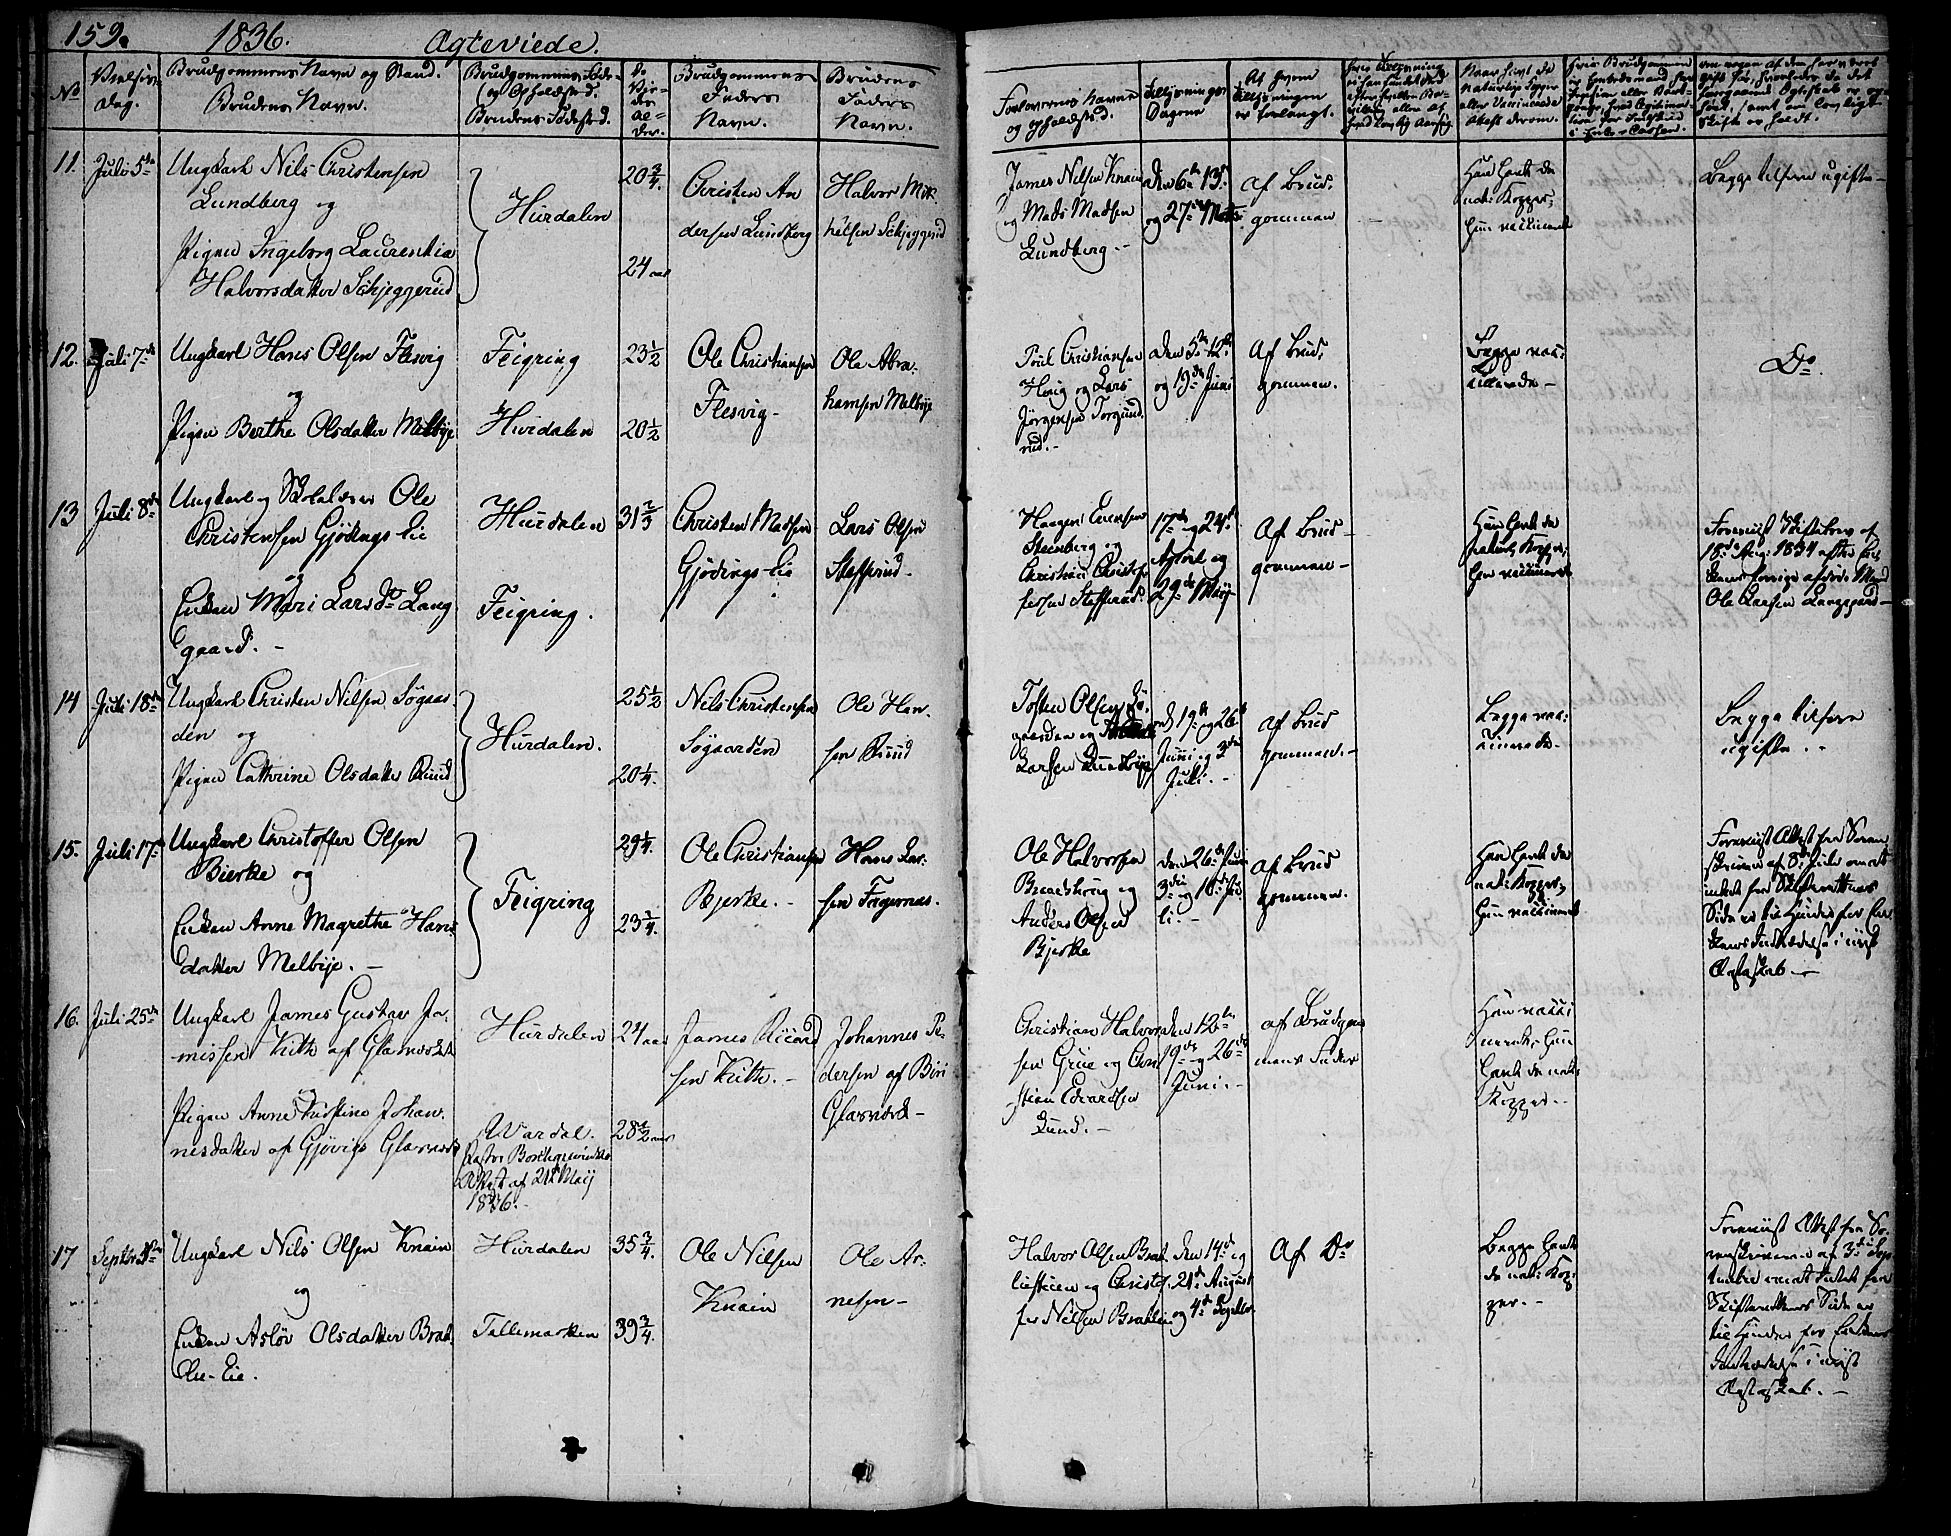 159. 1836. Ægteviede.
No
Vielses-
Dag.
Brudgommens Navn og Stand.
Brudens Navn.
Brudgommens Føde-
og Opholdsted.
Brudens Fødested.
Brudgommens
Faders
Navn.
Brudens
Faders
Navn.
Forlovernes Navne
og Opholdssted.
Tillysnings
Dagene
Af hvem
Tillysningen
er forlangt.
11. Juli 5te
Ungkarl Nils Christensen
Lundberg og
Pigen Ingeborg Laurentia
Halvorsdatter Schjeggerud
Hurdalen
20 3/4.
24 aar
Christen An
dersen Lundberg
Halvor Mik
kelsen Schjeggerud
James Nilsen Knain
og Mads Madsen
Lundberg.-
den 6te 13de
og 27de
Af Brud-
gommen
Han havt de
nat. Kopper,
Hun vaccineret
Begge tilforn ugifte-
12. Juli 7de
Ungkarl Hans Olsen Flesvig
og
Pigen Berthe Olsdatter Melbÿe
Feigring
Hurdalen
23 1/2
20 1/2
Ole Christiansen
Flesvig-
Ole Abra-
hamsen Melbÿe
Poul Christiansen
og Lars
Jörgensen
rud.-
den 5te 12te
og 19de Juni
Af Brud-
gommen.
Begge vac-
cinerede-
Do.
13 Juli 8de
Ungkarl og Skolelærer Ole
Christensen Gjödings-Eie
og
Enken Mari Larsdr Lang
gaard.-
Hurdalen
Feigring.
31 2/3
Christen Madsen
Gjödings-Eie
Lars Olsen
Stefferud-
Haagen Evensen
Steenberg og
Christian Christof
fersen Stefferud.
17de og 24de
April og
29de Maÿ
Af Brud-
gommen-
Han havt de
naturl. Kopper,
Hun vaccineret
Foreviist Skiftebrev af
18de Aug. 1834 efter En-
kens forrige afdøde Mand
Ole Larsen Langgaard-
14 Juli 18de
Ungkarl Christen Nilsen Søgaar-
den og
Pigen Cathrine Olsdatter Ruud
Hurdalen.
25 1/2
20 1/4.
Nils Christensen
Søgaarden
Ole Han-
sen Ruud
Tosten Olsen Sø-
gaarden og
Larsen
den 19de og 26de
Junii og 3die
Juli.-
Af Brud
gommen.-
Begge vac-
cinerede.
Begge tilforn
ugifte.-
15. Juli 17de
Ungkarl Christoffer Olsen
Bierke og
Enken Anne Magrethe Hans-
datter Melbÿe.-
Feigring
29 1/4.
23 3/4.
Ole Christiansen
Bjerke.-
Hans Lar-
sen Fingernæs.
Ole Halvorsen
Braadskoug og
Anders Olsen
Bjerke
den 26de Juni
3die og 10de Ju
li.-
Af Brud
gommen.
Han havt de
nat. Kopper,
Hun vaccineret
Foreviist Attest fra Soren
skriveren af 8de Juli om at
intet fra Skifterettens
Side er til Hinder for En-
kens Indtrædelse i nyt
Ægteskab.-
16. Juli 25de
Ungkarl James Gustav Ja-
missen Kith af Glasværket
og
Pigen Anne Kirstine Johan-
nesdatter af Gjøvigs Glasværk
Hurdalen
Wardal.
Pastor
Attest af 21de Maÿ
1836.
24 aar
28 1/2 aar
James Ricard
sen Kith.-
Johannes Pe-
dersen af Biri
Glasværk-
Christian Halvor
sen Grue og Chri
stian Edvardsen
Lund.-
den 12te
19de og 26de
Juni.-
af Brudgom
mens Fader
Han vacci
neret, Hun
havt de nat.
Kopper.-
17 Septbr
Ungkarl Nils Olsen Knain
og
Enken Asløv Olsdatter Brat
lie-Eie.
Hurdalen
Tellemarken
35 3/4.
39 3/4.
Ole Nilsen
Knain
Ole Ar-
nesen-
Halvor Olsen Brat
lieeien og Christof-
fer Nilsen Bratlie
den 14de og
21de August
og 4de Septbr.
Af Do
Begge havt
de nat. Kop-
per.-
Foreviist Attest fra So-
renskriveren af 3die Sep
tember om at Intet fra
Skifterettens Side er
til Hinder for Enkens
Indtrædelse i nyt
Ægteskab.-